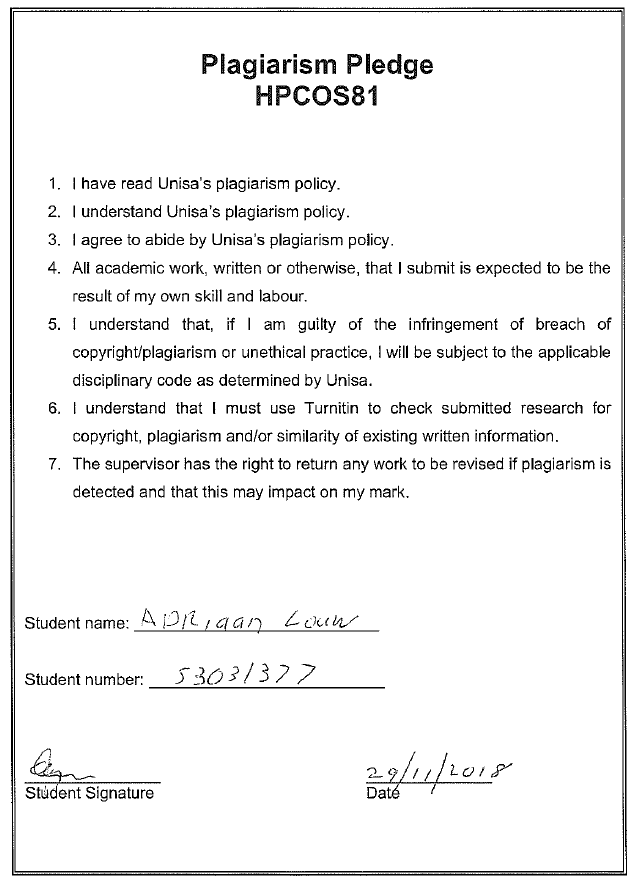 Plagiarism Pledge
HPCOS81
1. I have read Unisa's plagiarism policy.
2. I understand Unisa's plagiarism policy.
3. I agree to abide by Unisa's plagiarism policy.
4. All academic work, written or otherwise, that I submit is expected to be the
result of my own skill and labour.
5. I understand that, if I am guilty of the infringement of breach of
copyright/plagiarism or unethical practice, I will be subject to the applicable
disciplinary code as determined by Unisa.
6. I understand that I must use Turnitin to check submitted research for
copyright, plagiarism and/or similarity of existing written information.
7. The supervisor has the right to return any work to be revised if plagiarism is
detected and that this may impact on my mark.
Student name: ADRiaan Louw
Student number: 53031377
29/11/2018
Student Signature Date